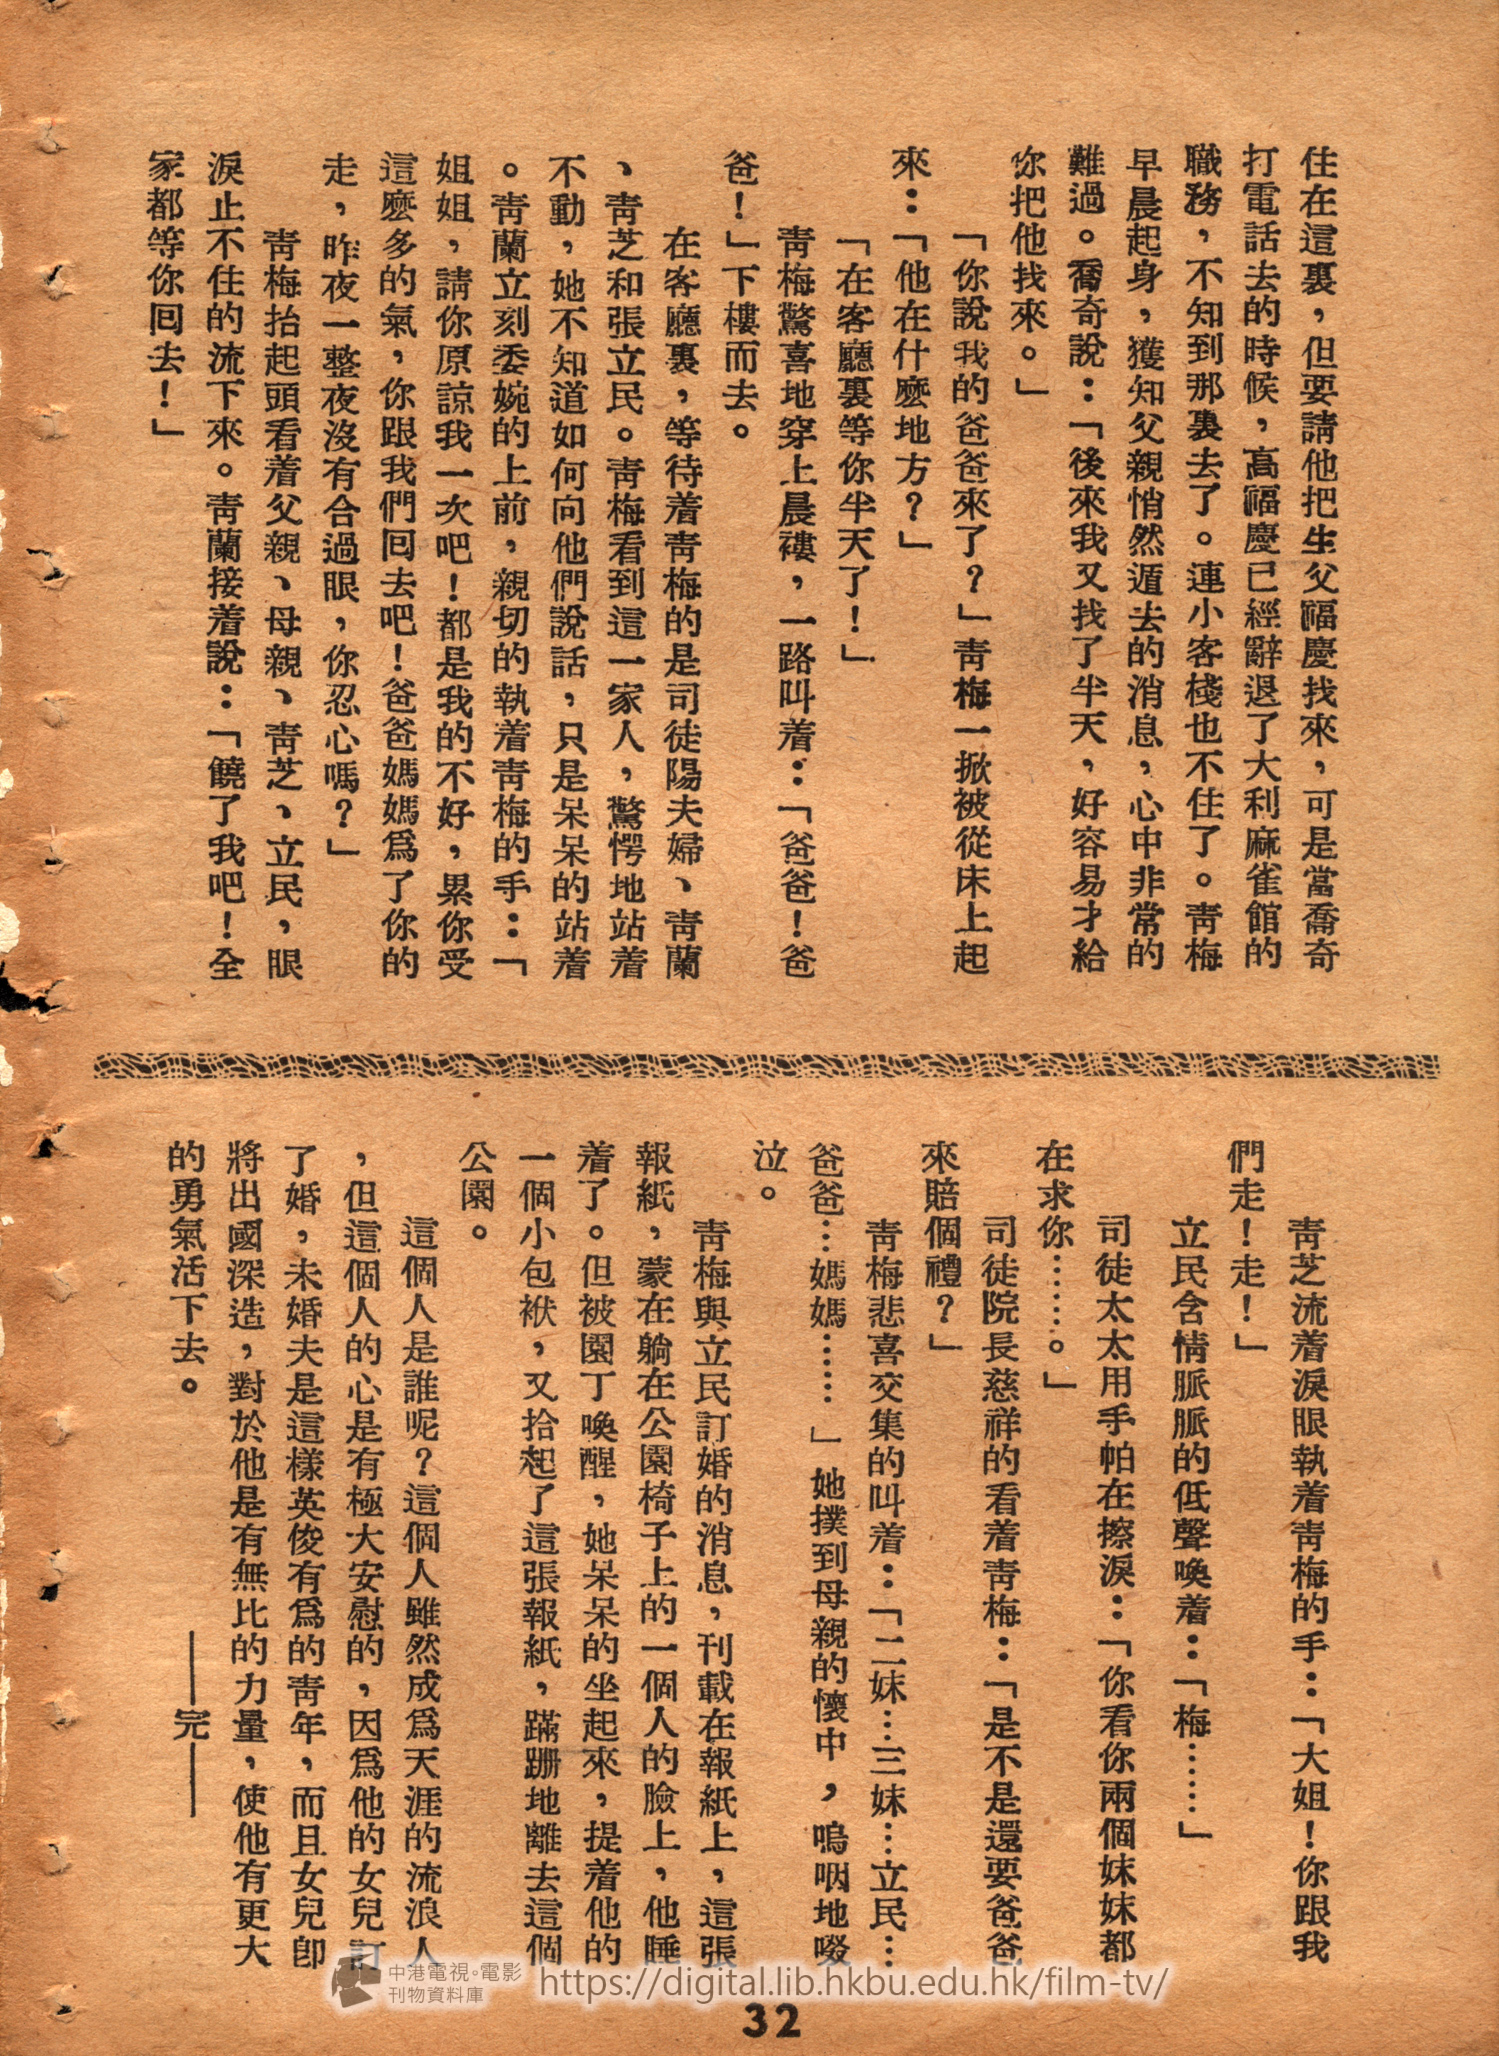 住在這裏，但要請他把生父福慶找來，可是當喬奇
打電話去的時候，高福慶已經辭退了大利麻雀館的
職務，不知到那裏去了。連小客棧也不住了。靑梅
早晨起身，獲知父親悄然遁去的消息，心中非常的
難過。喬奇說：「後來我又找了半天，好容易才給
你把他找來。」
「你說我的爸爸來了？」靑梅一掀被從床上起
來：「他在什麼地方？」
「在客廳裏等你半天了！」
靑梅驚喜地穿上晨褸，一路叫着：「爸爸！爸
爸！」下樓而去。
在客廳裏，等待着靑梅的是司徒陽夫婦、靑蘭
、靑芝和張立民。靑梅看到這一家人，驚愕地站着
不動，她不知道如何向他們說話，只是呆呆的站着
。靑蘭立刻委婉的上前，親切的執着靑梅的手：「
姐姐，請你原諒我一次吧！都是我的不好，累你受
這麼多的氣，你跟我們回去吧！爸爸媽媽爲了你的
走，昨夜一整夜沒有合過眼，你忍心嗎？」
靑梅抬起頭看着父親、母親、靑芝、立民，眼
淚止不住的流下來。靑蘭接着說：「饒了我吧！全
家都等你回去！」
靑芝流着淚眼執着靑梅的手：「大姐！你跟我
們走！走！」
立民含情脈脈的低聲喚着：「梅……」
司徒太太用手帕在擦淚：「你看你兩個妹妹都
在求你……。」
司徒院長慈祥的看着靑梅：「是不是還要爸爸
來賠個禮？」
靑梅悲喜交集的叫着：「二妹…三妹…立民…
爸爸…媽媽……」她撲到母親的懷中，嗚咽地啜
泣。
靑梅與立民訂婚的消息，刊載在報紙上，這張
報紙，蒙在躺在公園椅子上的一個人的臉上，他睡
着了。但被園丁喚醒，她呆呆的坐起來，提着他的
一個小包袱，又拾起了這張報紙，蹣跚地離去這個
公園。
這個人是誰呢？這個人雖然成爲天涯的流浪人
，但這個人的心是有極大安慰的，因爲他的女兒訂
了婚，未婚夫是這樣英俊有爲的靑年，而且女兒卽
將出國深造，對於他是有無比的力量，使他有更大
的勇氣活下去。
——完——
中港電視。電影
刊物資料庫
https://digital.lib.hkbu.edu.hk/film-tv/
32